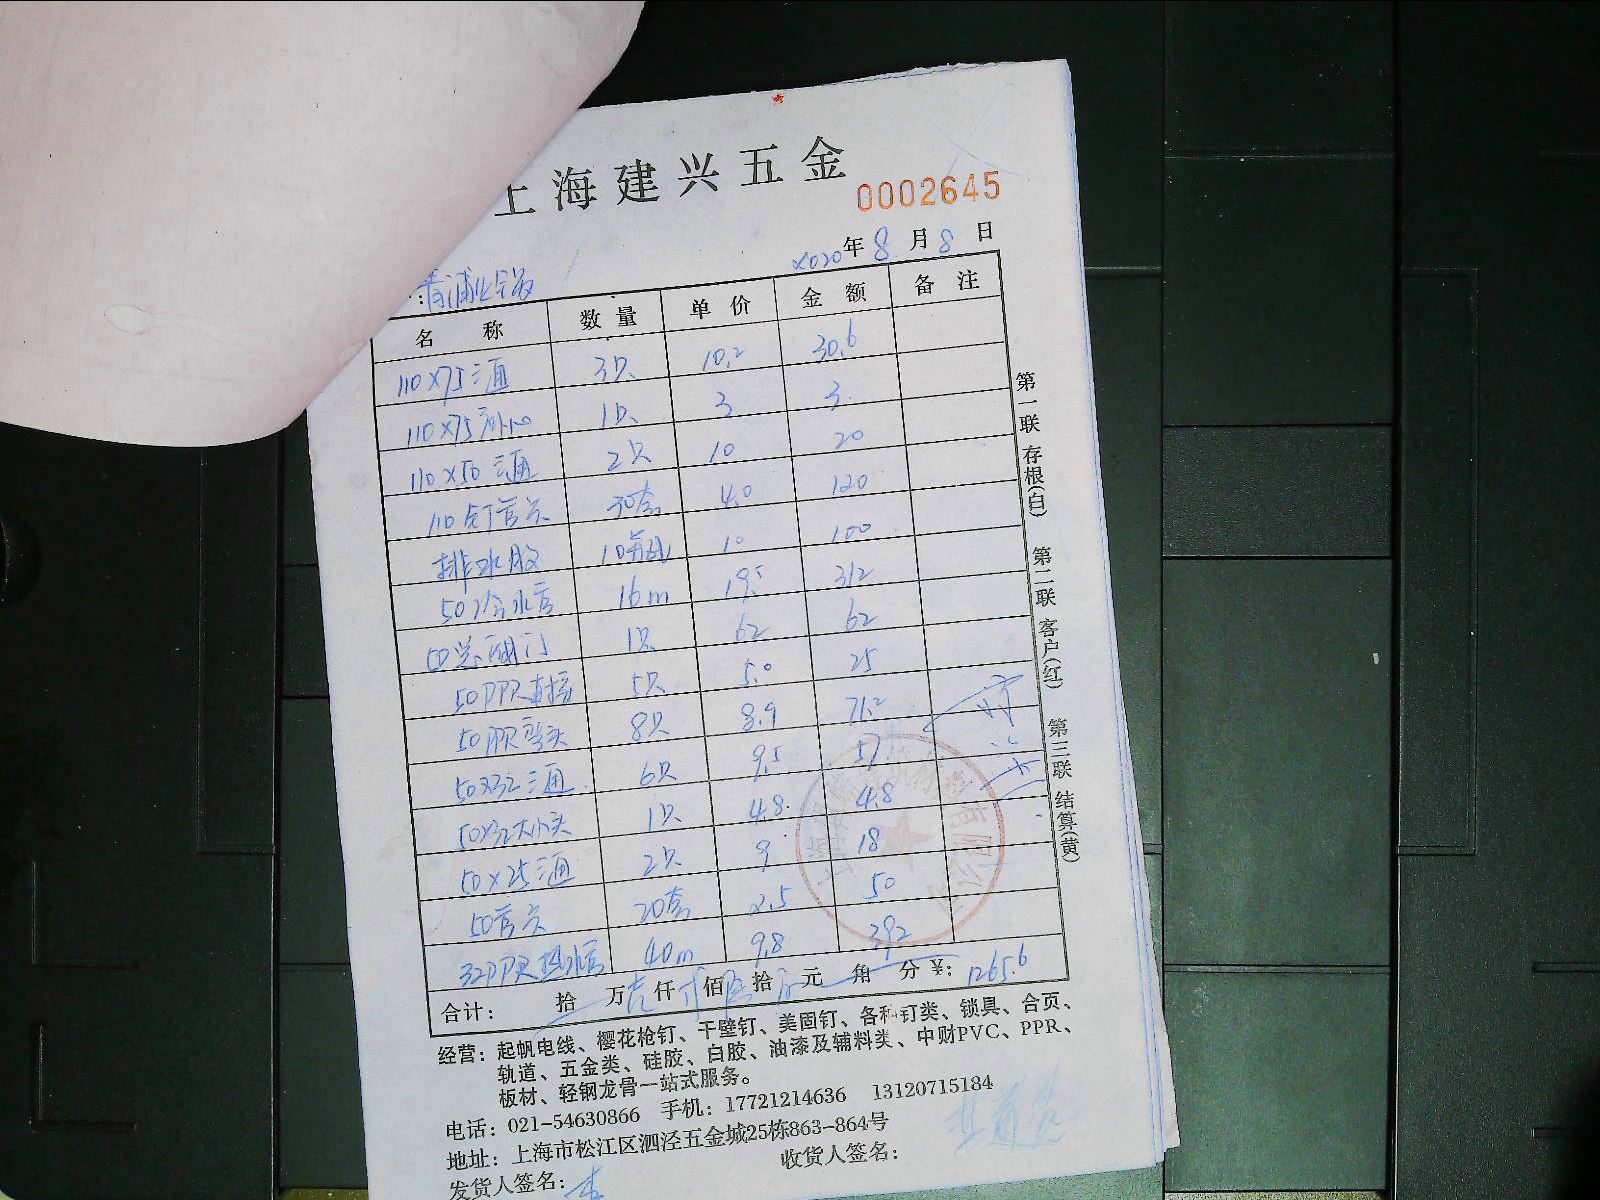 上海建兴五金
0002645
2020年8月8日
名称 数量 单价 金额 备注
110×75三通 3只 10.2 30.6
110×75 1只 3 3
110×50三通 2只 10 20
110 30套 4.0 120
排水胶 10 10 100
50冷水管 16m 19.5 312
50 阀门 1只 62 62
50PPR直接 5只 5.0 25
50PPR弯头 8只 8.9 71.2
50×32三通 6只 9.5 57
50×32大小头 1只 4.8 4.8
50×25三通 2只 9 18
50管卡 20套 2.5 50
32PPR热水管 40m 9.8 392
合计: 拾 万 仟 佰 拾 元 角 分 ¥: 1265.6
第一联 存根(白) 第二联 客户(红) 第三联 结算(黄)
经营: 起帆电线、樱花枪钉、干壁钉、美固钉、各种钉类、锁具、合页、
轨道、五金类、硅胶、白胶、油漆及辅料类、中财PVC、PPR、
板材、轻钢龙骨一站式服务。
电话: 021-54630866 手机: 17721214636 13120715184
地址: 上海市松江区泗泾五金城25栋863-864号
发货人签名: 收货人签名: